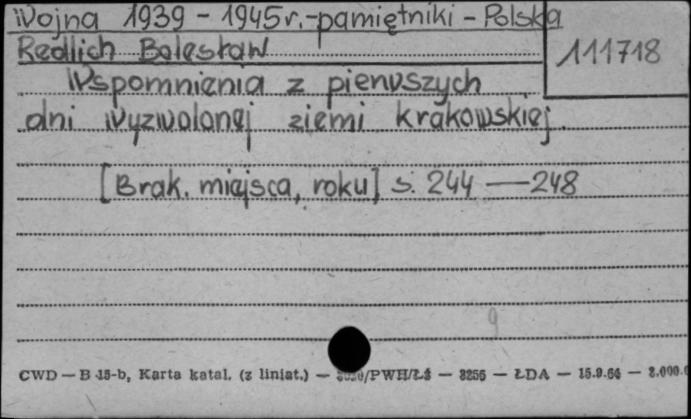 Wojna 1939 - 1945r.-pamiętniki - Polska
Redlich Bolesław
111718
Wspomnienia z pierwszych
dni wyzwolonej ziemi krakowskiej.
[Brak. miejsca, roku] s. 244 — 248
9
CWD — B 15-b, Karta katal. (z liniat.) — /PWH/Łź — 3256 — ŁDA — 15.9.66 — 2.000.0